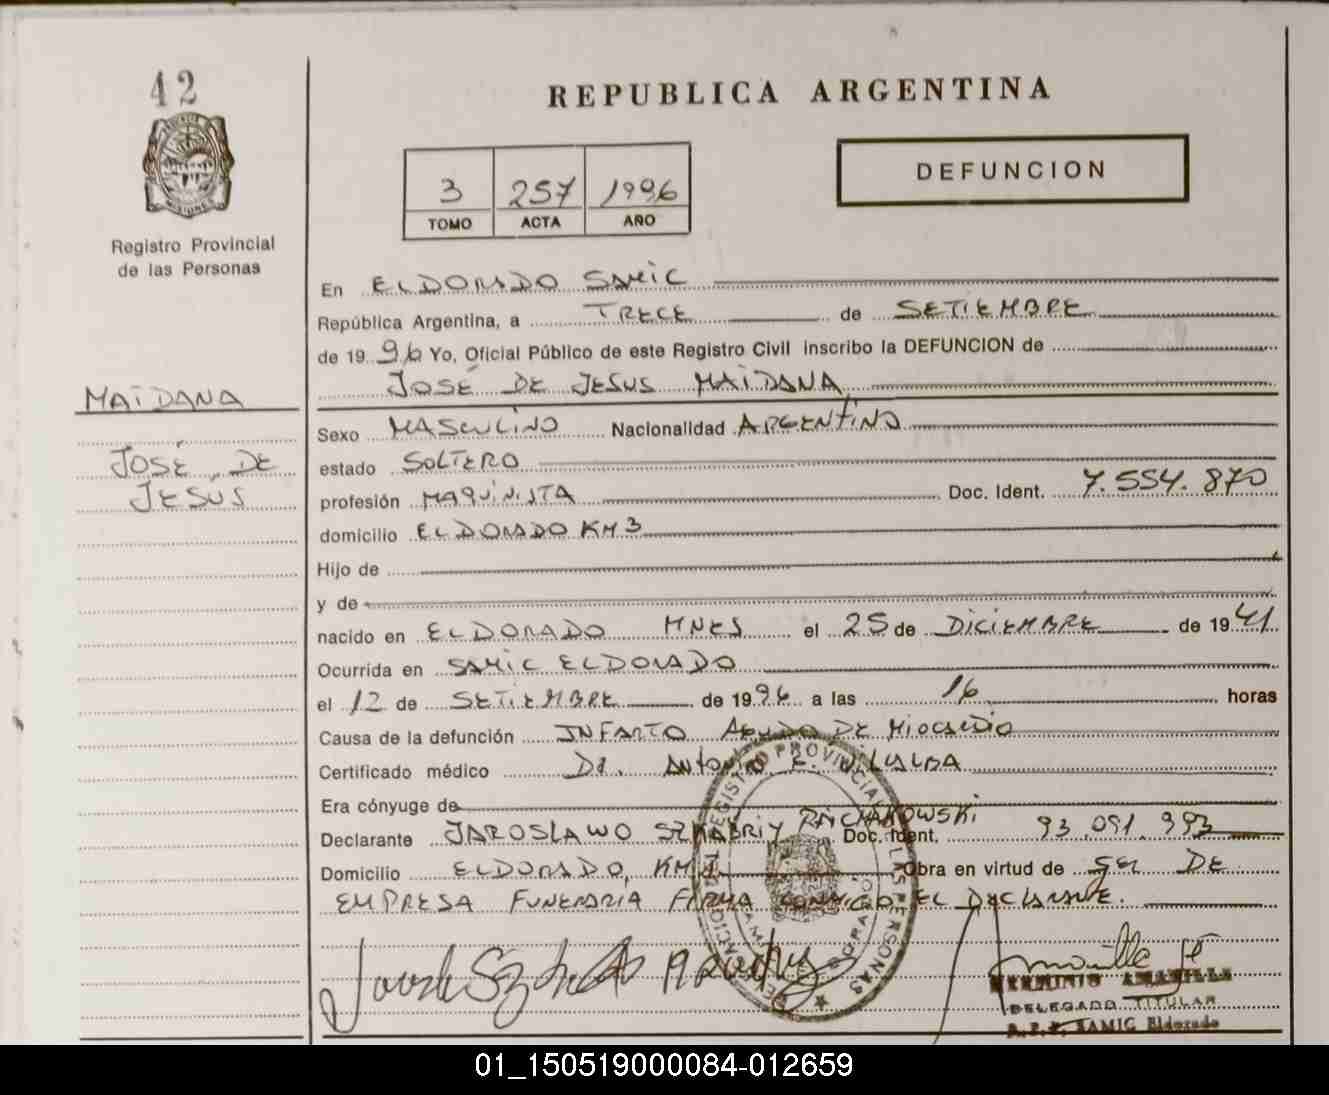 42
REPUBLICA ARGENTINA
DEFUNCION
3 257 1996
TOMO ACTA AÑO
MISIONES
Registro Provincial
de las Personas
En ELDORADO SAMIC
República Argentina, a TRECE de SETIEMBRE
de 19 96 Yo, Oficial Público de este Registro Civil inscribo la DEFUNCION de
JOSÉ DE JESUS MAIDANA
MAIDANA
JOSÉ DE
JESUS
Sexo MASCULINO Nacionalidad ARGENTINO
estado SOLTERO
profesión MAQUINISTA Doc. Ident. 7.554.870
domicilio ELDORADO KM 3
Hijo de
y de
nacido en ELDORADO MNES el 25 de DICIEMBRE de 19 41
Ocurrida en SAMIC ELDORADO
el 12 de SETIEMBRE de 19 96 a las 16 horas
Causa de la defunción INFARTO AGUDO DE MIOCARDIO
Certificado médico Dr. ANTONIO E. VILLALBA
Era cónyuge de
Declarante JAROSLAWO SZKABRIY RAICHAKOWSKI Doc. Ident. 93.091.993
Domicilio ELDORADO, KM Obra en virtud de SER DE
EMPRESA FUNERARIA FIRMA CONMIGO EL DECLARANTE.
REGISTRO PROVINCIAL LAS PERSONAS
HERMINIO AMARILLA
DELEGADO TITULAR
R.P.P. SAMIC Eldorado
01_150519000084-012659